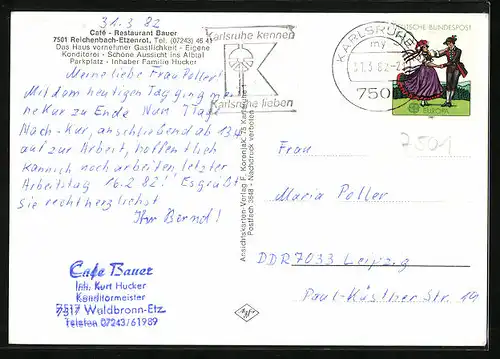 31.3.82
Café - Restaurant Bauer
7501 Reichenbach-Etzenrot. Tel. (07243) 46 41
Das Haus vornehmer Gastlichkeit - Eigene
Konditorei - Schöne Aussicht ins Albtal
Parkplatz - Inhaber Familie Hucker
Meine liebe Frau Poller!
Mit dem heutigen Tag ging mei
ne Kur zu Ende Nun 7 Tage
Nach-Kur, anschließend ab 13.4
auf zur Arbeit, hoffentlich
kann ich noch arbeiten, letzter
Arbeitstag 16.2.82! Es grüßt
sie recht herzlichst
Ihr Bernd!
Cafe Bauer
Inh. Kurt Hucker
Konditormeister
7517 Waldbronn-Etz.
Telefon 07243/61989
Ansichtskarten-Verlag F. Korenjak, 75 Karlsruhe 1
Postfach 3648 - Nachdruck verboten
Karlsruhe kennen
Karlsruhe lieben
KARLSRUHE
my
31.3.82-2
750
DEUTSCHE BUNDESPOST
EUROPA
7501
Frau
Maria Poller
DDR 7033 Leipzig
Paul-Küstner Str. 19
Agfa